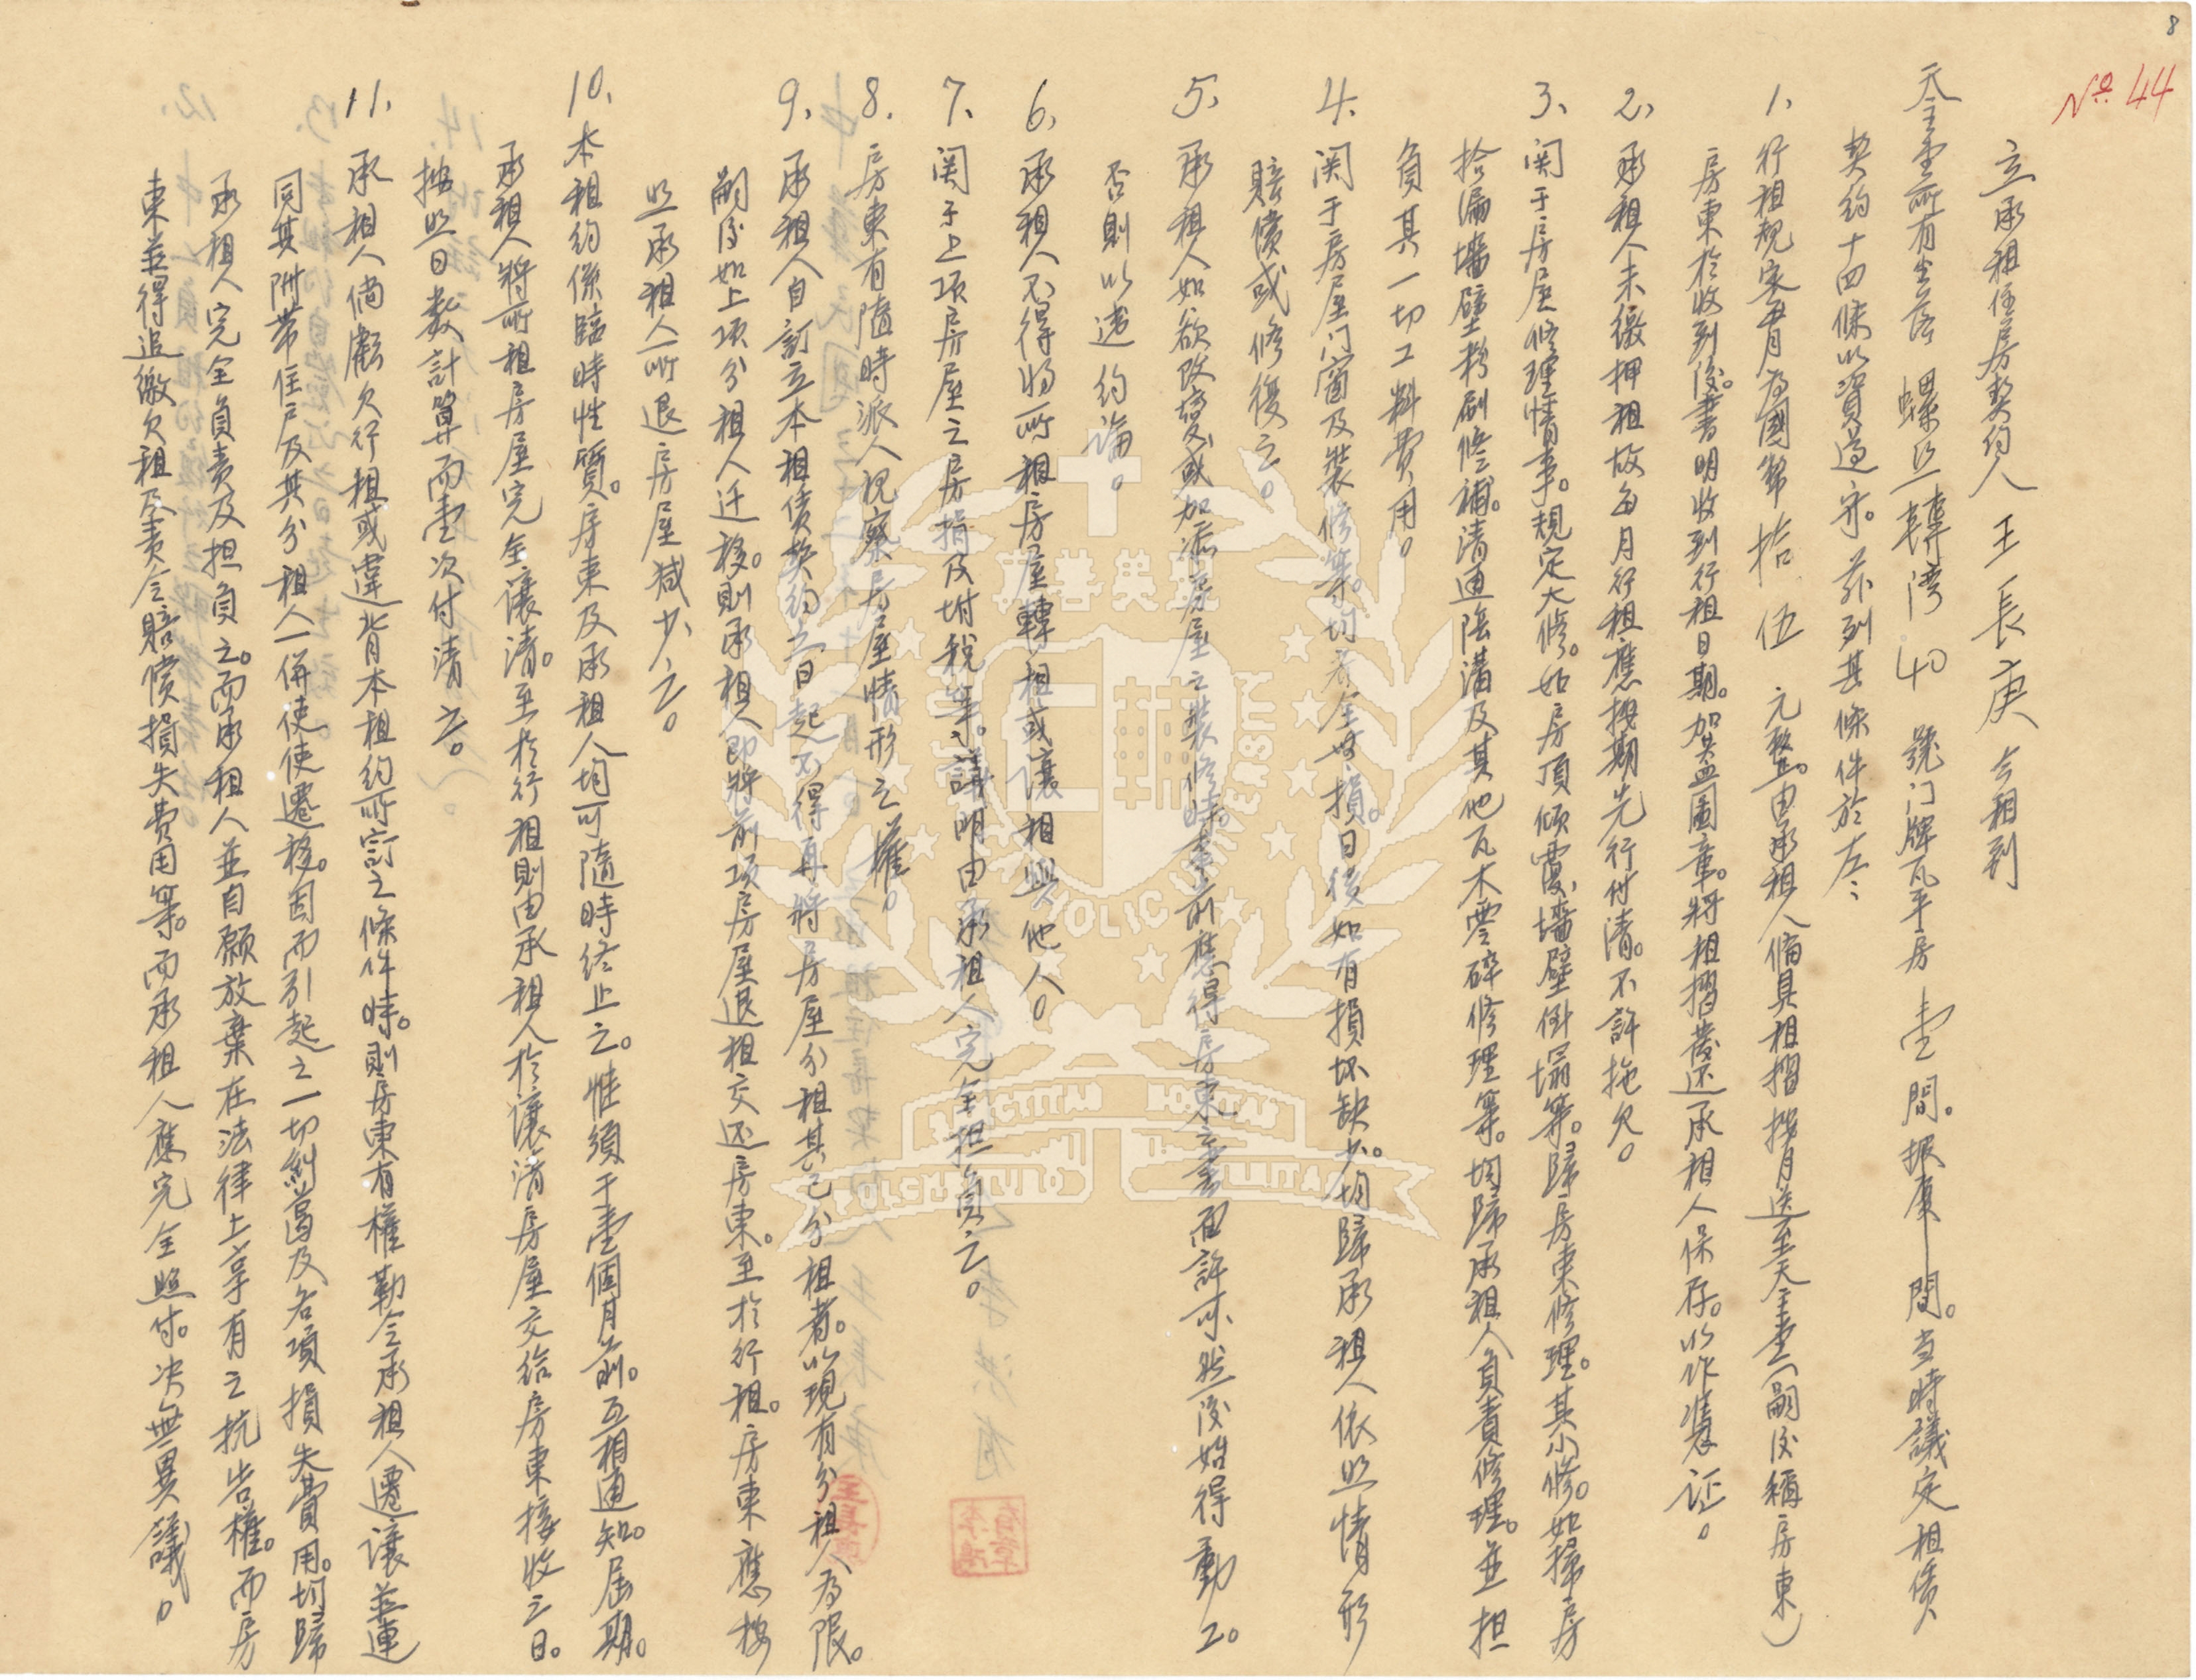 8
No. 44
立承租住房契約人 王長庚 今租到
天主堂所有坐落 螺丝轉湾 40 號门牌瓦平房 壹 間。披厦 間。当時議定租賃
契約十四條以資遵守。茲列其條件於左：
1、行租規定每月為國幣 拾 伍 元整。由承租人備具租摺按月送至天主堂（嗣後稱房東）
房東於收到後。書明收到行租日期。加盖圖章。将租摺發还承租人保存。以作憑証。
2、承租人未繳押租故每月行租應按期先行付清。不許拖欠。
3、関于房屋修理情事。規定大修。如房頂傾覆墻壁倒塌等。歸房東修理。其小修。如掃房
拾漏墻壁粉刷修補。清通陰溝及其他瓦木零碎修理等。均歸承租人負責修理。並担
負其一切工料費用。
4、関于房屋门窗及裝修等。均考全無損。日後如有損坏缺少。均歸承租人依照情形
賠償或修復之。
5、承租人如欲改变或加添房屋之裝修時。事前應得房東之書面許可然後始得動工。
否則以违约論。
6、承租人不得將所租房屋轉租或讓租與他人。
7、関于上項房屋之房捐及坿稅等。議明由承租人完全担負之。
8、房東有隨時派人視察房屋情形之權。
9、承租人自訂立本租賃契約之日起不得再將房屋分租其已分租者。以現有分租人為限。
嗣後如上項分租人迁移。則承租人即將前項房屋退租交还房東。至於行租。房東應按
照承租人所退房屋減少之。
10、本租約係臨時性質。房東及承租人均可隨時終止之。惟須于壹個月前。互相通知。屆期。
承租人將所租房屋完全讓清。至於行租則由承租人於讓清房屋交給房東接收之日。
按照日數計算而壹次付清之。
11、承租人倘虧欠行租或違背本租約所訂之條件時。則房東有權勒令承租人遷讓並連
同其附帶住戶及其分租人一併使使遷移。因而引起之一切糾葛及各項損失費用。均歸
承租人完全負責及担負之。而承租人並自願放棄在法律上享有之抗告權。而房
東並得追繳欠租及責令賠償損失費用等。而承租人應完全照付。决無異議。